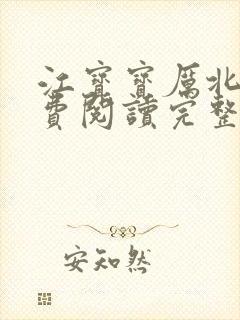 江寶寶厲北
費閱讀完整
安知然